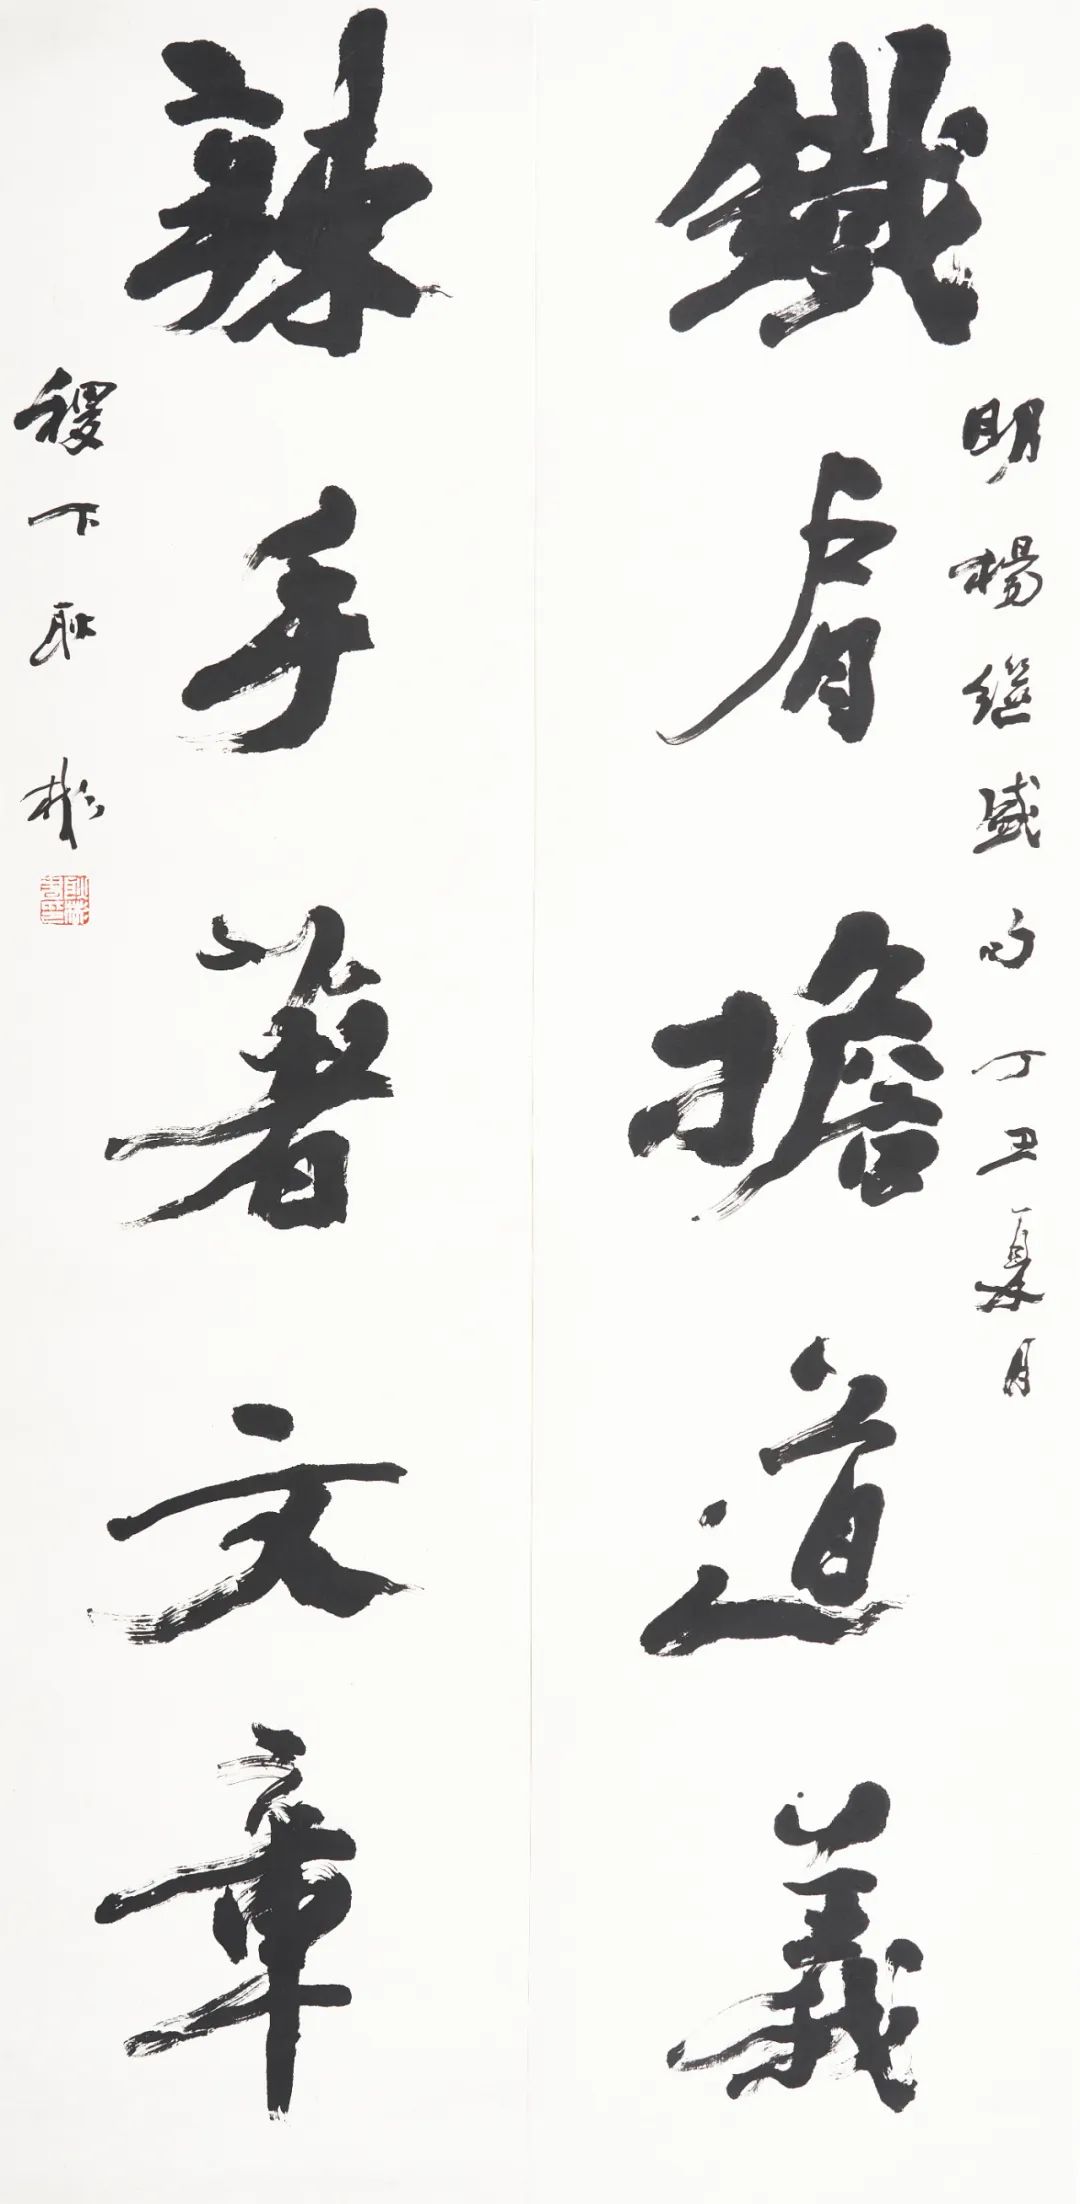 明楊繼盛句丁丑夏月
鐵肩擔道義
辣手著文章
稷下耿彬